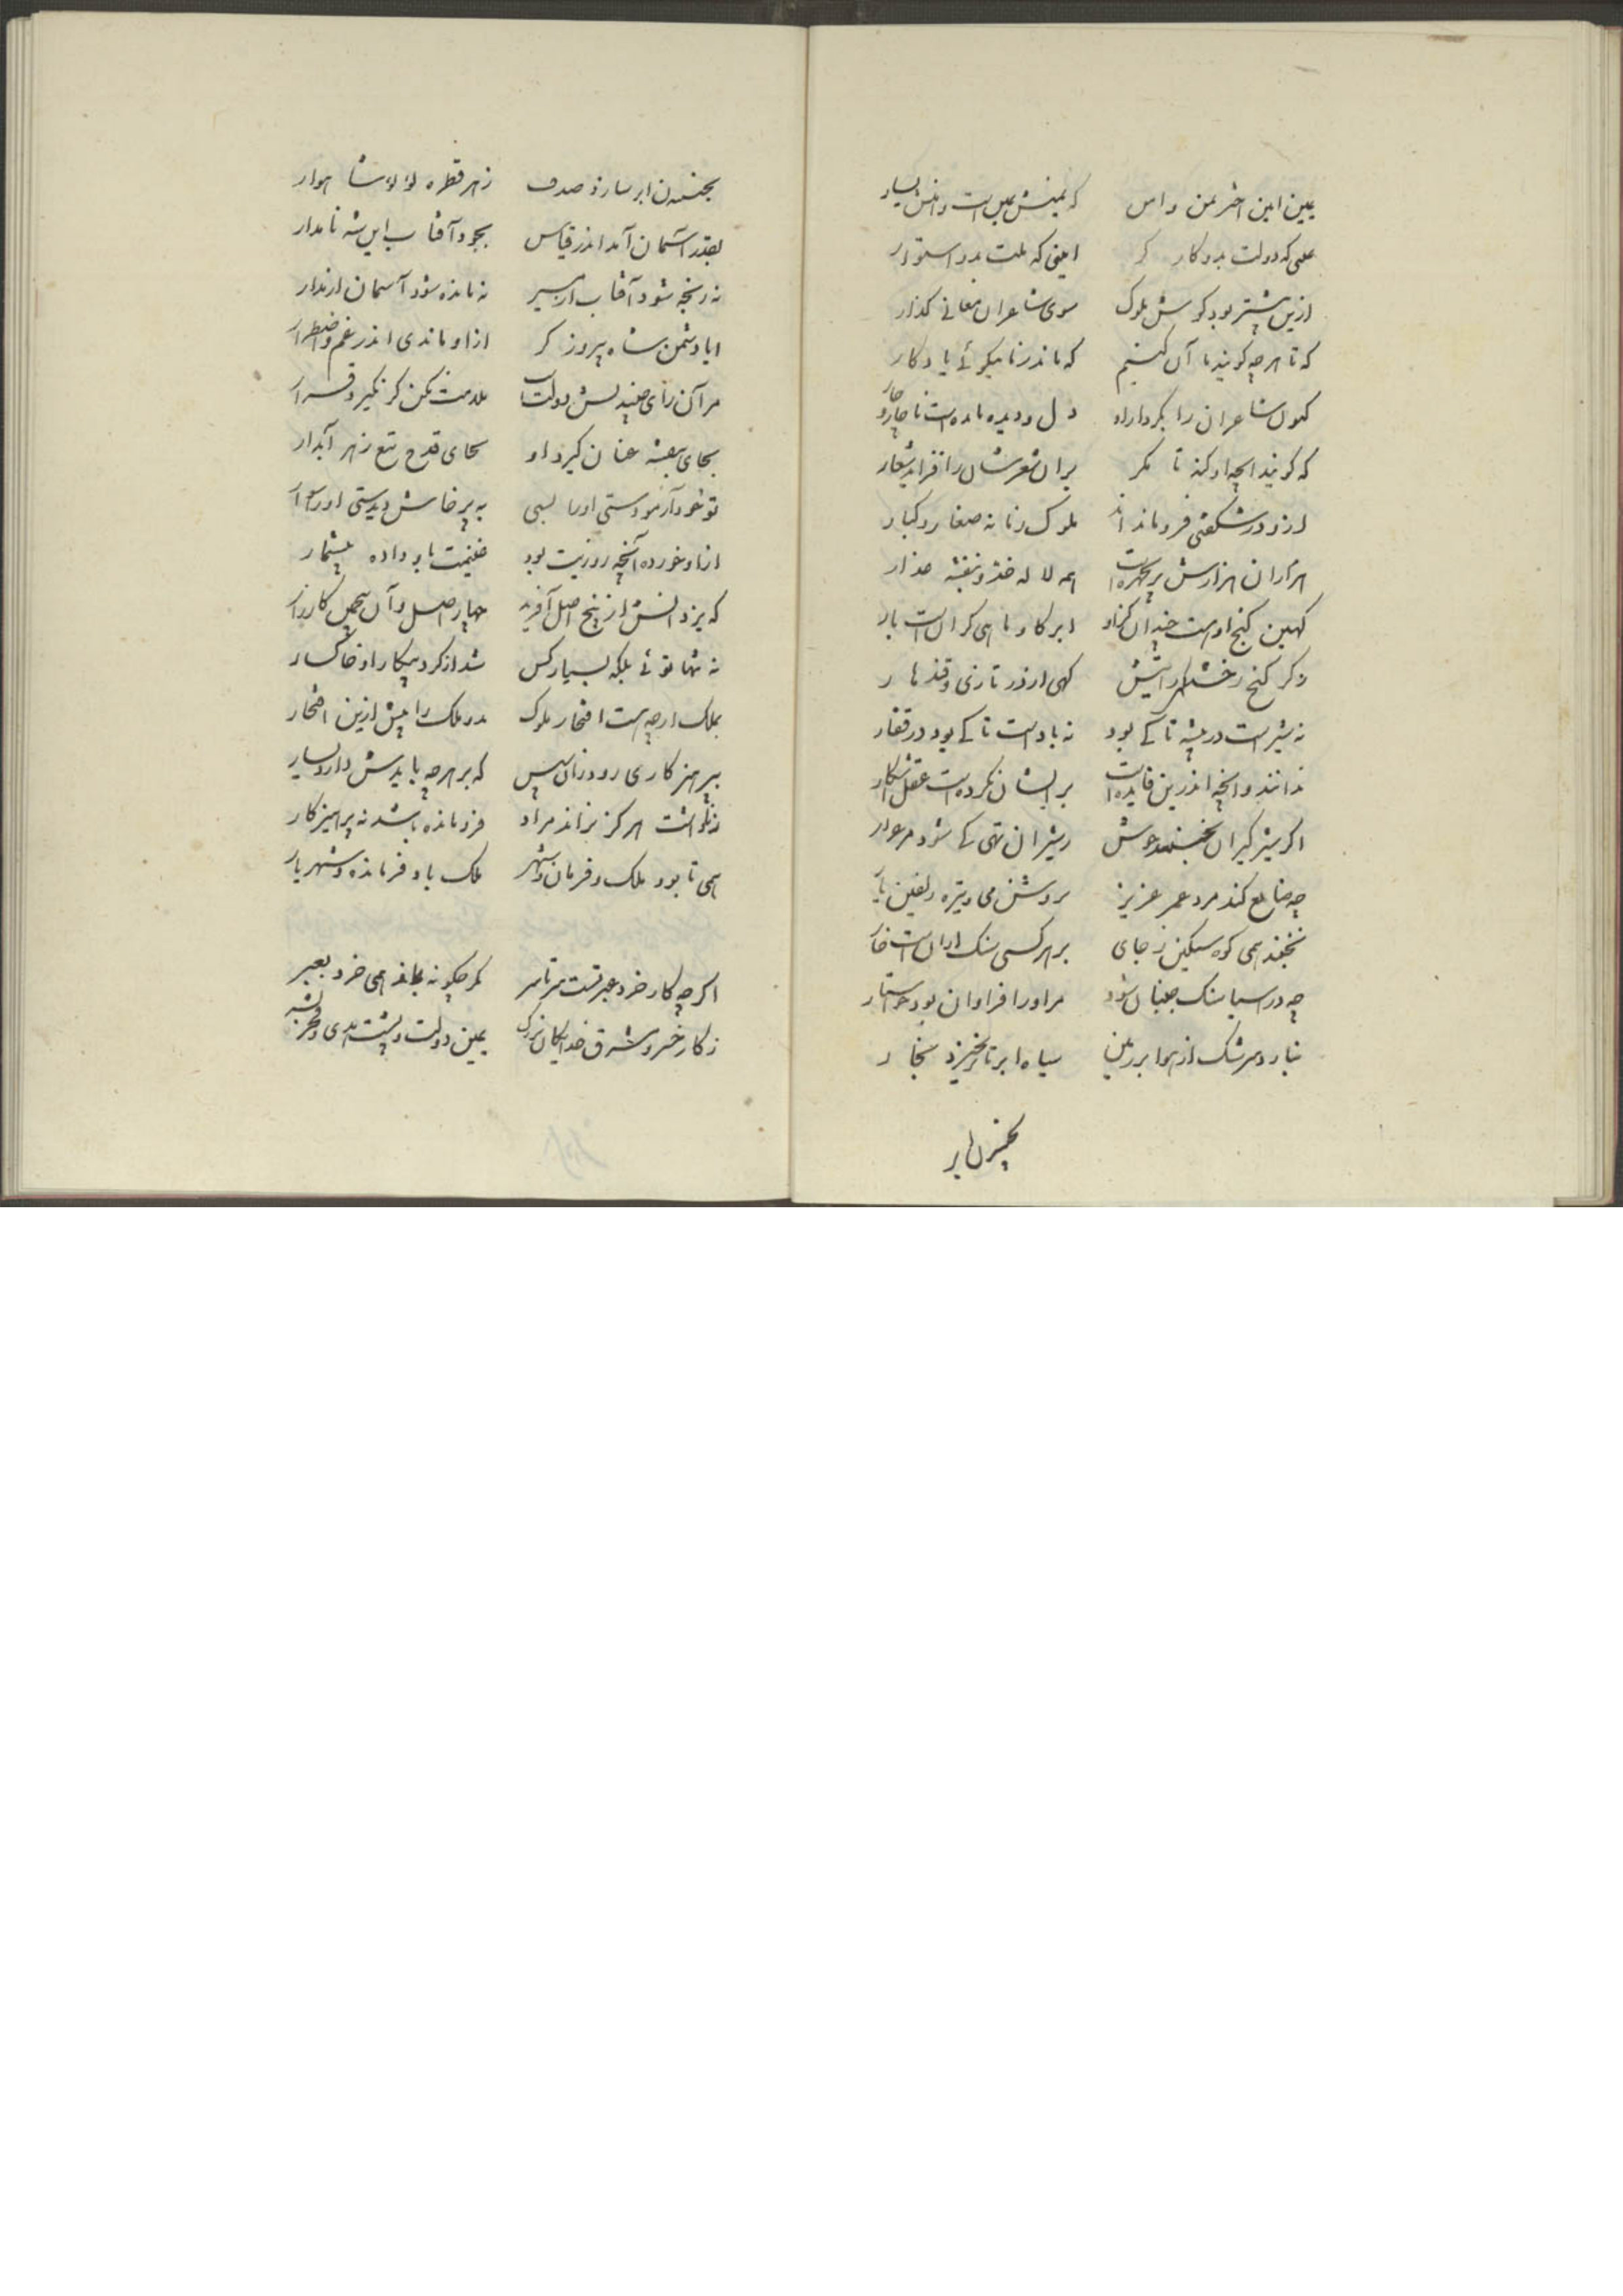 یمین امین اختر یمن و امن که یمنش یمین است و امنش یسار
که دولت بدو کار کر امینی که ملت بدو استوار
ازین پیشتر بود کوشش ملوک سوی شاعران معانی گذار
که تا هرچه گویند ما آن کنیم که ماند ز ما نیکوئی یادکار
کنون شاعران را بکردار او دل و دیده مانده است ناچار چار
که گویند آنچه او کند تا مکر بر آن شعرشان را فزاید شعار
ازو در شکفتی فرو مانده‌اند ملوک زمانه صغار و کبار
هزاران هزارش پریچهره است همه لاله خد و بنفشه عذار
کهین کنج او هست چندان کزو ابر کاو ماهی کران است بار
دکر کنج
نه شیر است در بیشه تا کی بود نه باد است تا کی بود در قفار
ندانند و آنچه اندرین فایده است بر ایشان نکرده است عقل آشکار
اکر شیرکیران بخسبند خوش ز شیران تهی کی شود مرغزار
چه ضایع کند مرد عمر عزیز بروشن می و تیره زلفین یار
نجنبد همی کوه سنگین ز جای بر هر کسی سنک ازان است خوار
چه در آسیا سنک جنبان شود مر او را فراوان بود خواستار
نبارد سرشک از هوا بر زمین سیاه ابر تا برنخیزد بخار
بجنبیدن ابر
بجنبیدن ابر سازد صدف ز هر قطره لؤلؤ شاهوار
بقدر آسمان آمد اندر قیاس بجود آفتاب این شه نامدار
نه رنجه شود آفتاب از مسیر نه مانده شود آسمان از مدار
ایا دشمن شاه پیروزکر ازو ماندی اندر غم و اضطرار
مر آن رای جنبنده‌اش دولت است ملامت مکن کر نکیرد قرار
بجای بنفشه عنان کیرد او بجای قدح تیغ زهر آبدار
تو خود آزمودستی او را بسی به پرخاش دیدستی او را سوار
از او خورده آنچه روزیت بود غنیمت باو داده بیشمار
که یزدانش از پنج اصل آفرید چهار اصل و آن پنجمین کارزار
نه تنها توئی بلکه بسیار کس شد از کرد پیکار او خاکسار
بملک ارچه هست افتخار ملوک بدو ملک را بیش ازین افتخار
بپرهیزکاری رود زان سپس که بر هرچه بایدش دارد یسار
هرکز نراند مراد فرومانده باشد نه پرهیزکار
همی تا بود ملک و فرمان و شهر ملک باد فرمانده و شهریار
اکر چه کار خرد عبرتست سرتاسر نکر چکونه بماند همی خرد بعبر
ز کار خسرو مشرق خدایکان بزرک یمین دولت و پشت هدی و فخر بشر